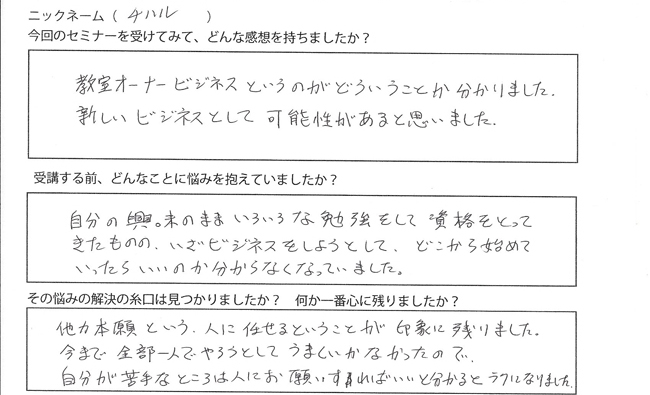 ニックネーム ( チハル )
今回のセミナーを受けてみて、どんな感想を持ちましたか？
教室オーナービジネスというのがどういうことか分かりました.
新しいビジネスとして可能性があると思いました.
受講する前、どんなことに悩みを抱えていましたか？
自分の興味のまま いろいろな勉強をして 資格をとって
きたものの、いざビジネスをしようとして、どこから始めて
いったらいいのか分からなくなっていました。
その悩みの解決の糸口は見つかりましたか？ 何か一番心に残りましたか？
他力本願という、人に任せるということが印象に残りました。
今まで全部一人でやろうとしてうまくいかなかったので、
自分が苦手なところは人にお願いすればいいと分かるとラクになりました.